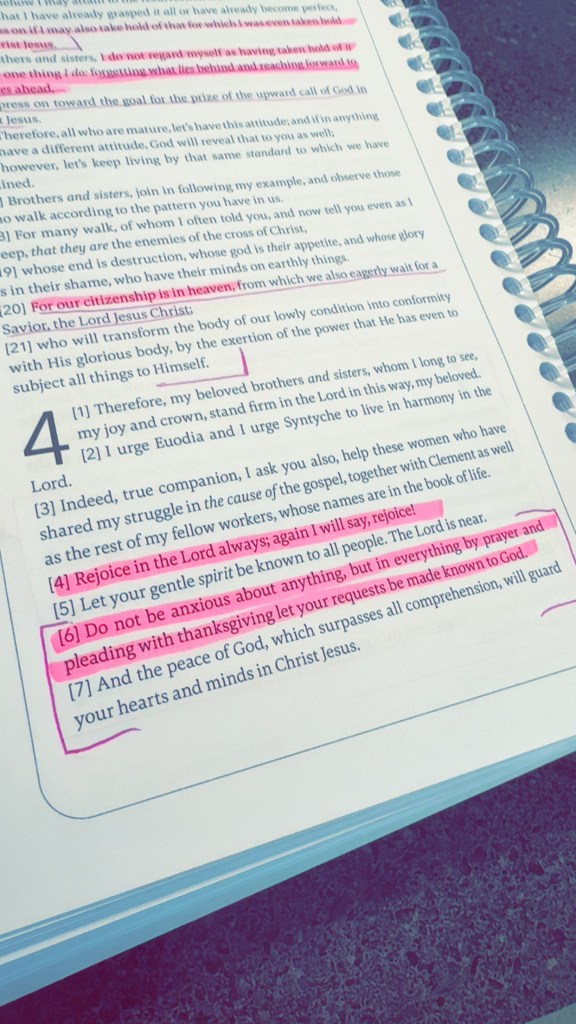 that I have already grasped it all or have already become perfect,
ss on if I may also take hold of that for which I was even taken hold
rist Jesus.
thers and sisters, I do not regard myself as having taken hold of it
one thing I do: forgetting what lies behind and reaching forward to
es ahead,
press on toward the goal for the prize of the upward call of God in
t Jesus.
Therefore, all who are mature, let's have this attitude; and if in anything
have a different attitude, God will reveal that to you as well;
however, let's keep living by that same standard to which we have
ined.
] Brothers and sisters, join in following my example, and observe those
o walk according to the pattern you have in us.
8] For many walk, of whom I often told you, and now tell you even as I
eep, that they are the enemies of the cross of Christ,
19] whose end is destruction, whose god is their appetite, and whose glory
s in their shame, who have their minds on earthly things.
[20] For our citizenship is in heaven, from which we also eagerly wait for a
Savior, the Lord Jesus Christ;
[21] who will transform the body of our lowly condition into conformity
with His glorious body, by the exertion of the power that He has even to
subject all things to Himself.
4 [1] Therefore, my beloved brothers and sisters, whom I long to see,
my joy and crown, stand firm in the Lord in this way, my beloved.
[2] I urge Euodia and I urge Syntyche to live in harmony in the
Lord.
[3] Indeed, true companion, I ask you also, help these women who have
shared my struggle in the cause of the gospel, together with Clement as well
as the rest of my fellow workers, whose names are in the book of life.
[4] Rejoice in the Lord always; again I will say, rejoice!
[5] Let your gentle spirit be known to all people. The Lord is near.
[6] Do not be anxious about anything, but in everything by prayer and
pleading with thanksgiving let your requests be made known to God.
[7] And the peace of God, which surpasses all comprehension, will guard
your hearts and minds in Christ Jesus.